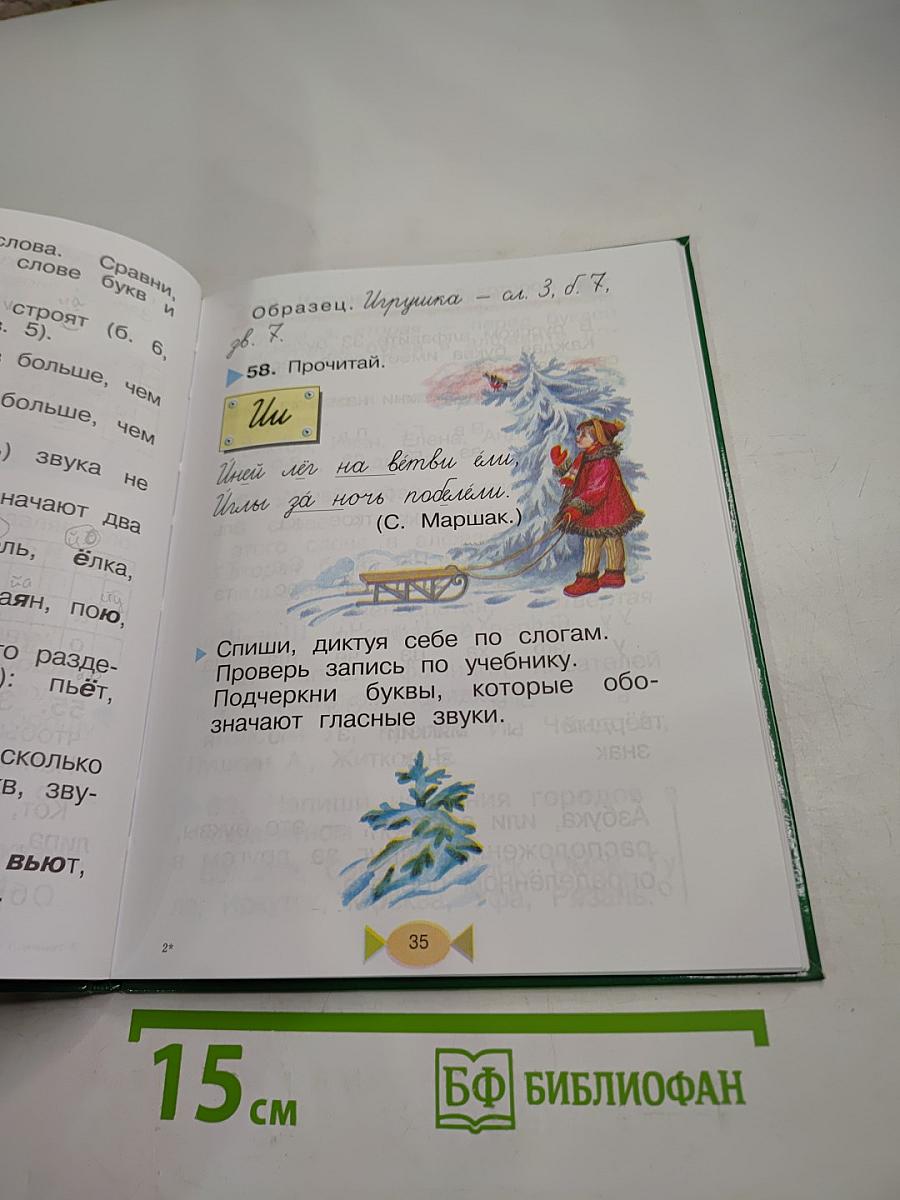 слова. Сравни,
слове букв и
строят (б. 6,
в. 5).
больше, чем
больше, чем
) звука не
начают два
ль, ёлка,
аян, пою,
го разде-
): пьёт,
сколько
кв, зву-
вьют,
Образец. Игрушка – сл. 3, б. 7,
зв. 7.
58. Прочитай.
Ии
И́ней лёг на ве́тви е́ли,
И́глы за́ ночь побеле́ли.
(С. Маршак.)
Спиши, диктуя себе по слогам.
Проверь запись по учебнику.
Подчеркни буквы, которые обо-
значают гласные звуки.
2*
35
15 см
БФ БИБЛИОФАН